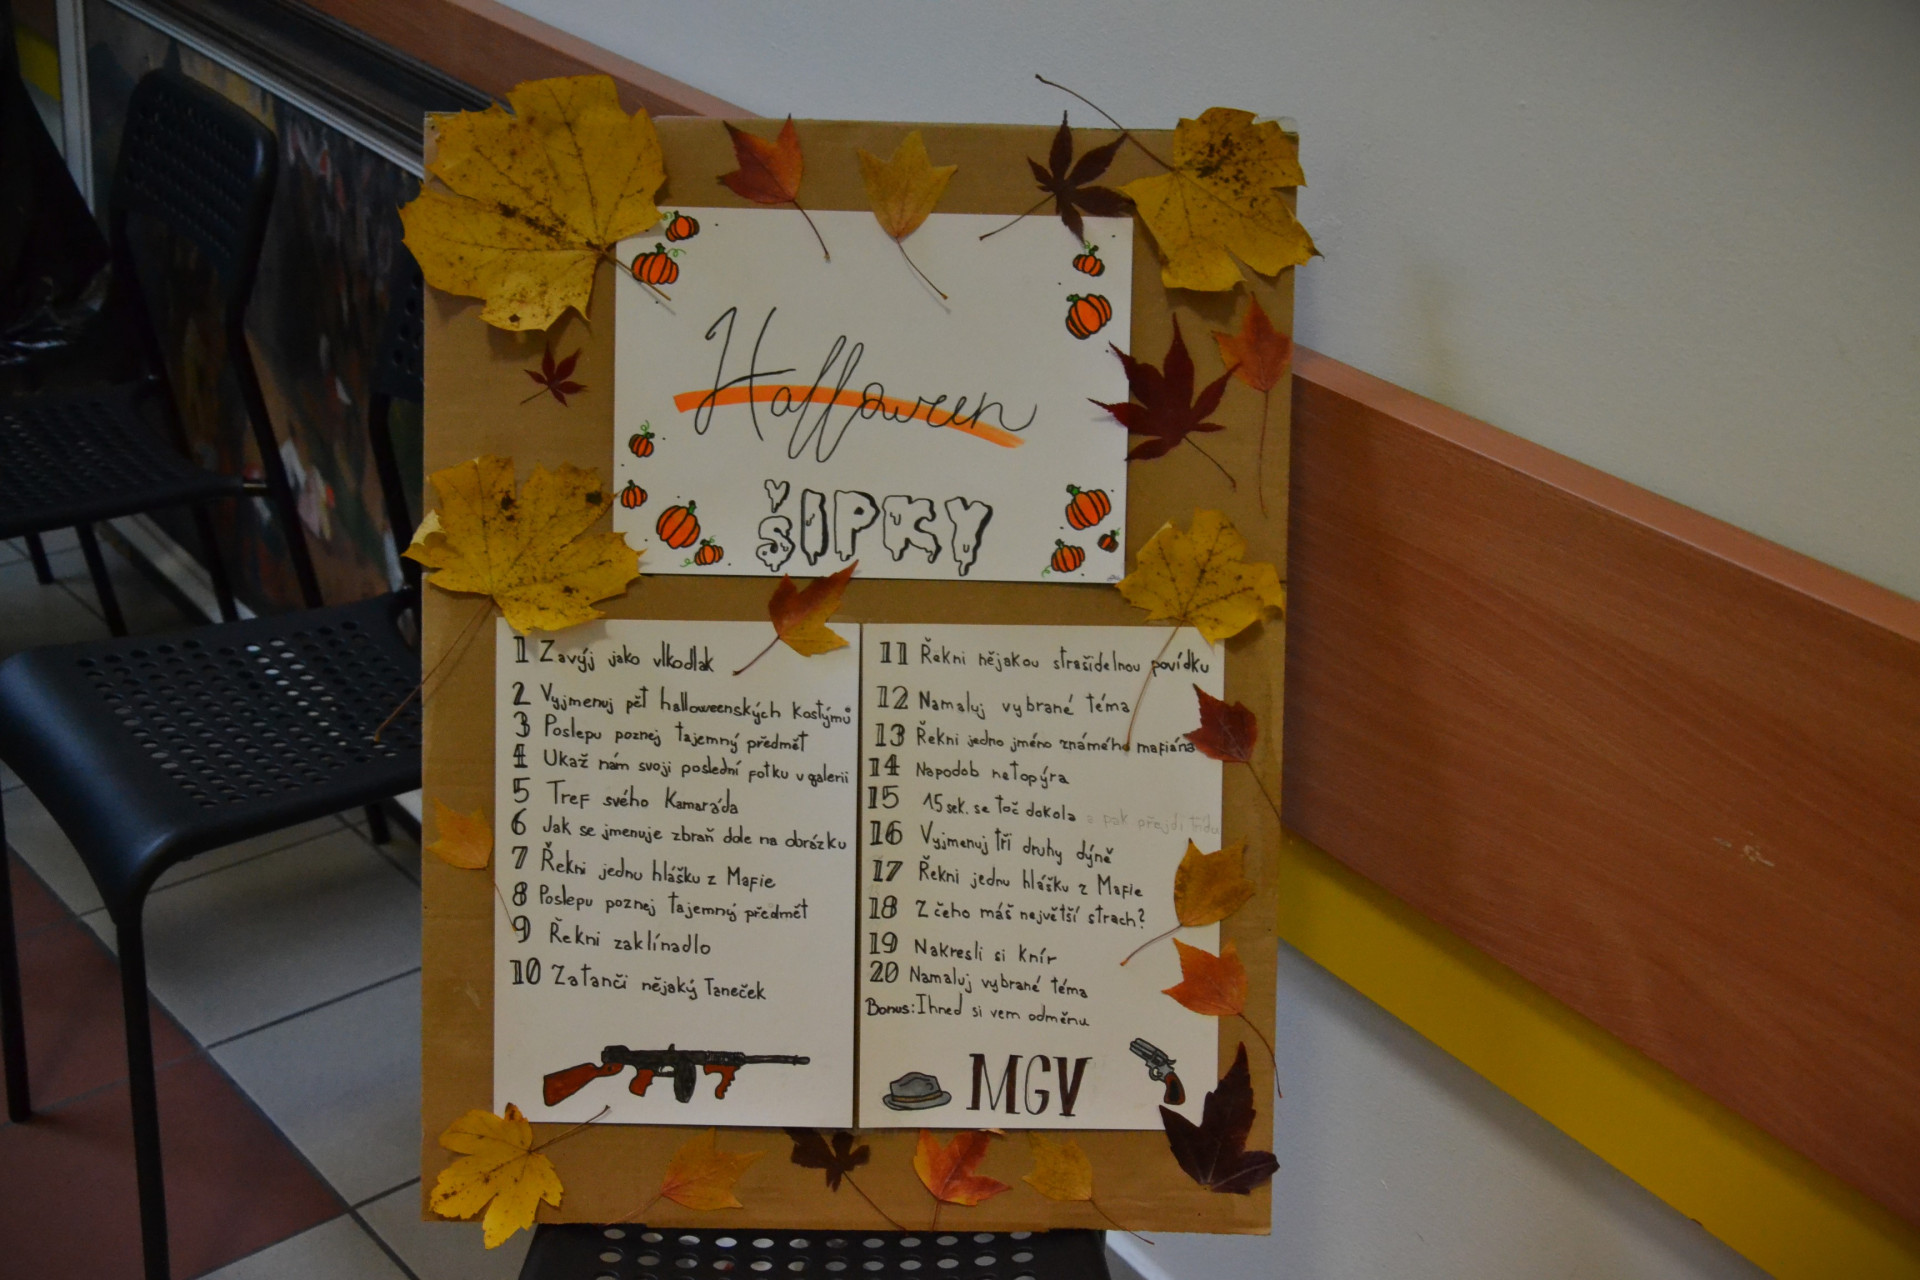 Halloween
ŠIPKY
1 Zavýj jako vlkodlak
2 Vyjmenuj pět halloweenských kostýmů
3 Poslepu poznej tajemný předmět
4 Ukaž nám svoji poslední fotku v galerii
5 Tref svého Kamaráda
6 Jak se jmenuje zbraň dole na obrázku
7 Řekni jednu hlášku z Mafie
8 Poslepu poznej tajemný předmět
9 Řekni zaklínadlo
10 Zatanči nějaký Taneček
11 Řekni nějakou strašidelnou povídku
12 Namaluj vybrané téma
13 Řekni jedno jméno známého mafiána
14 Napodob netopýra
15 15 sek. se toč dokola a pak přejdi třídu
16 Vyjmenuj tři druhy dýně
17 Řekni jednu hlášku z Mafie
18 Z čeho máš největší strach?
19 Nakresli si knír
20 Namaluj vybrané téma
Bonus: Ihned si vem odměnu
MGV